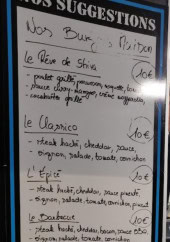 NOS SUGGESTIONS
Nos Maison
Le Rêve de Shiva 10€
- poulet grillé, poivrons, roquette,
- sauce curry-mangue, crème
- cacahuète grillé
Le Classico 10€
- steak haché, cheddar, sauce,
- oignon, salade, tomate, cornichon
L'Épicé 10€
- steak haché, cheddar, sauce
- oignon, salade, tomate, cornichon,
Le Barbecue 10€
- steak haché, cheddar, bacon, sauce BBQ
- oignon, salade, tomate, cornichon